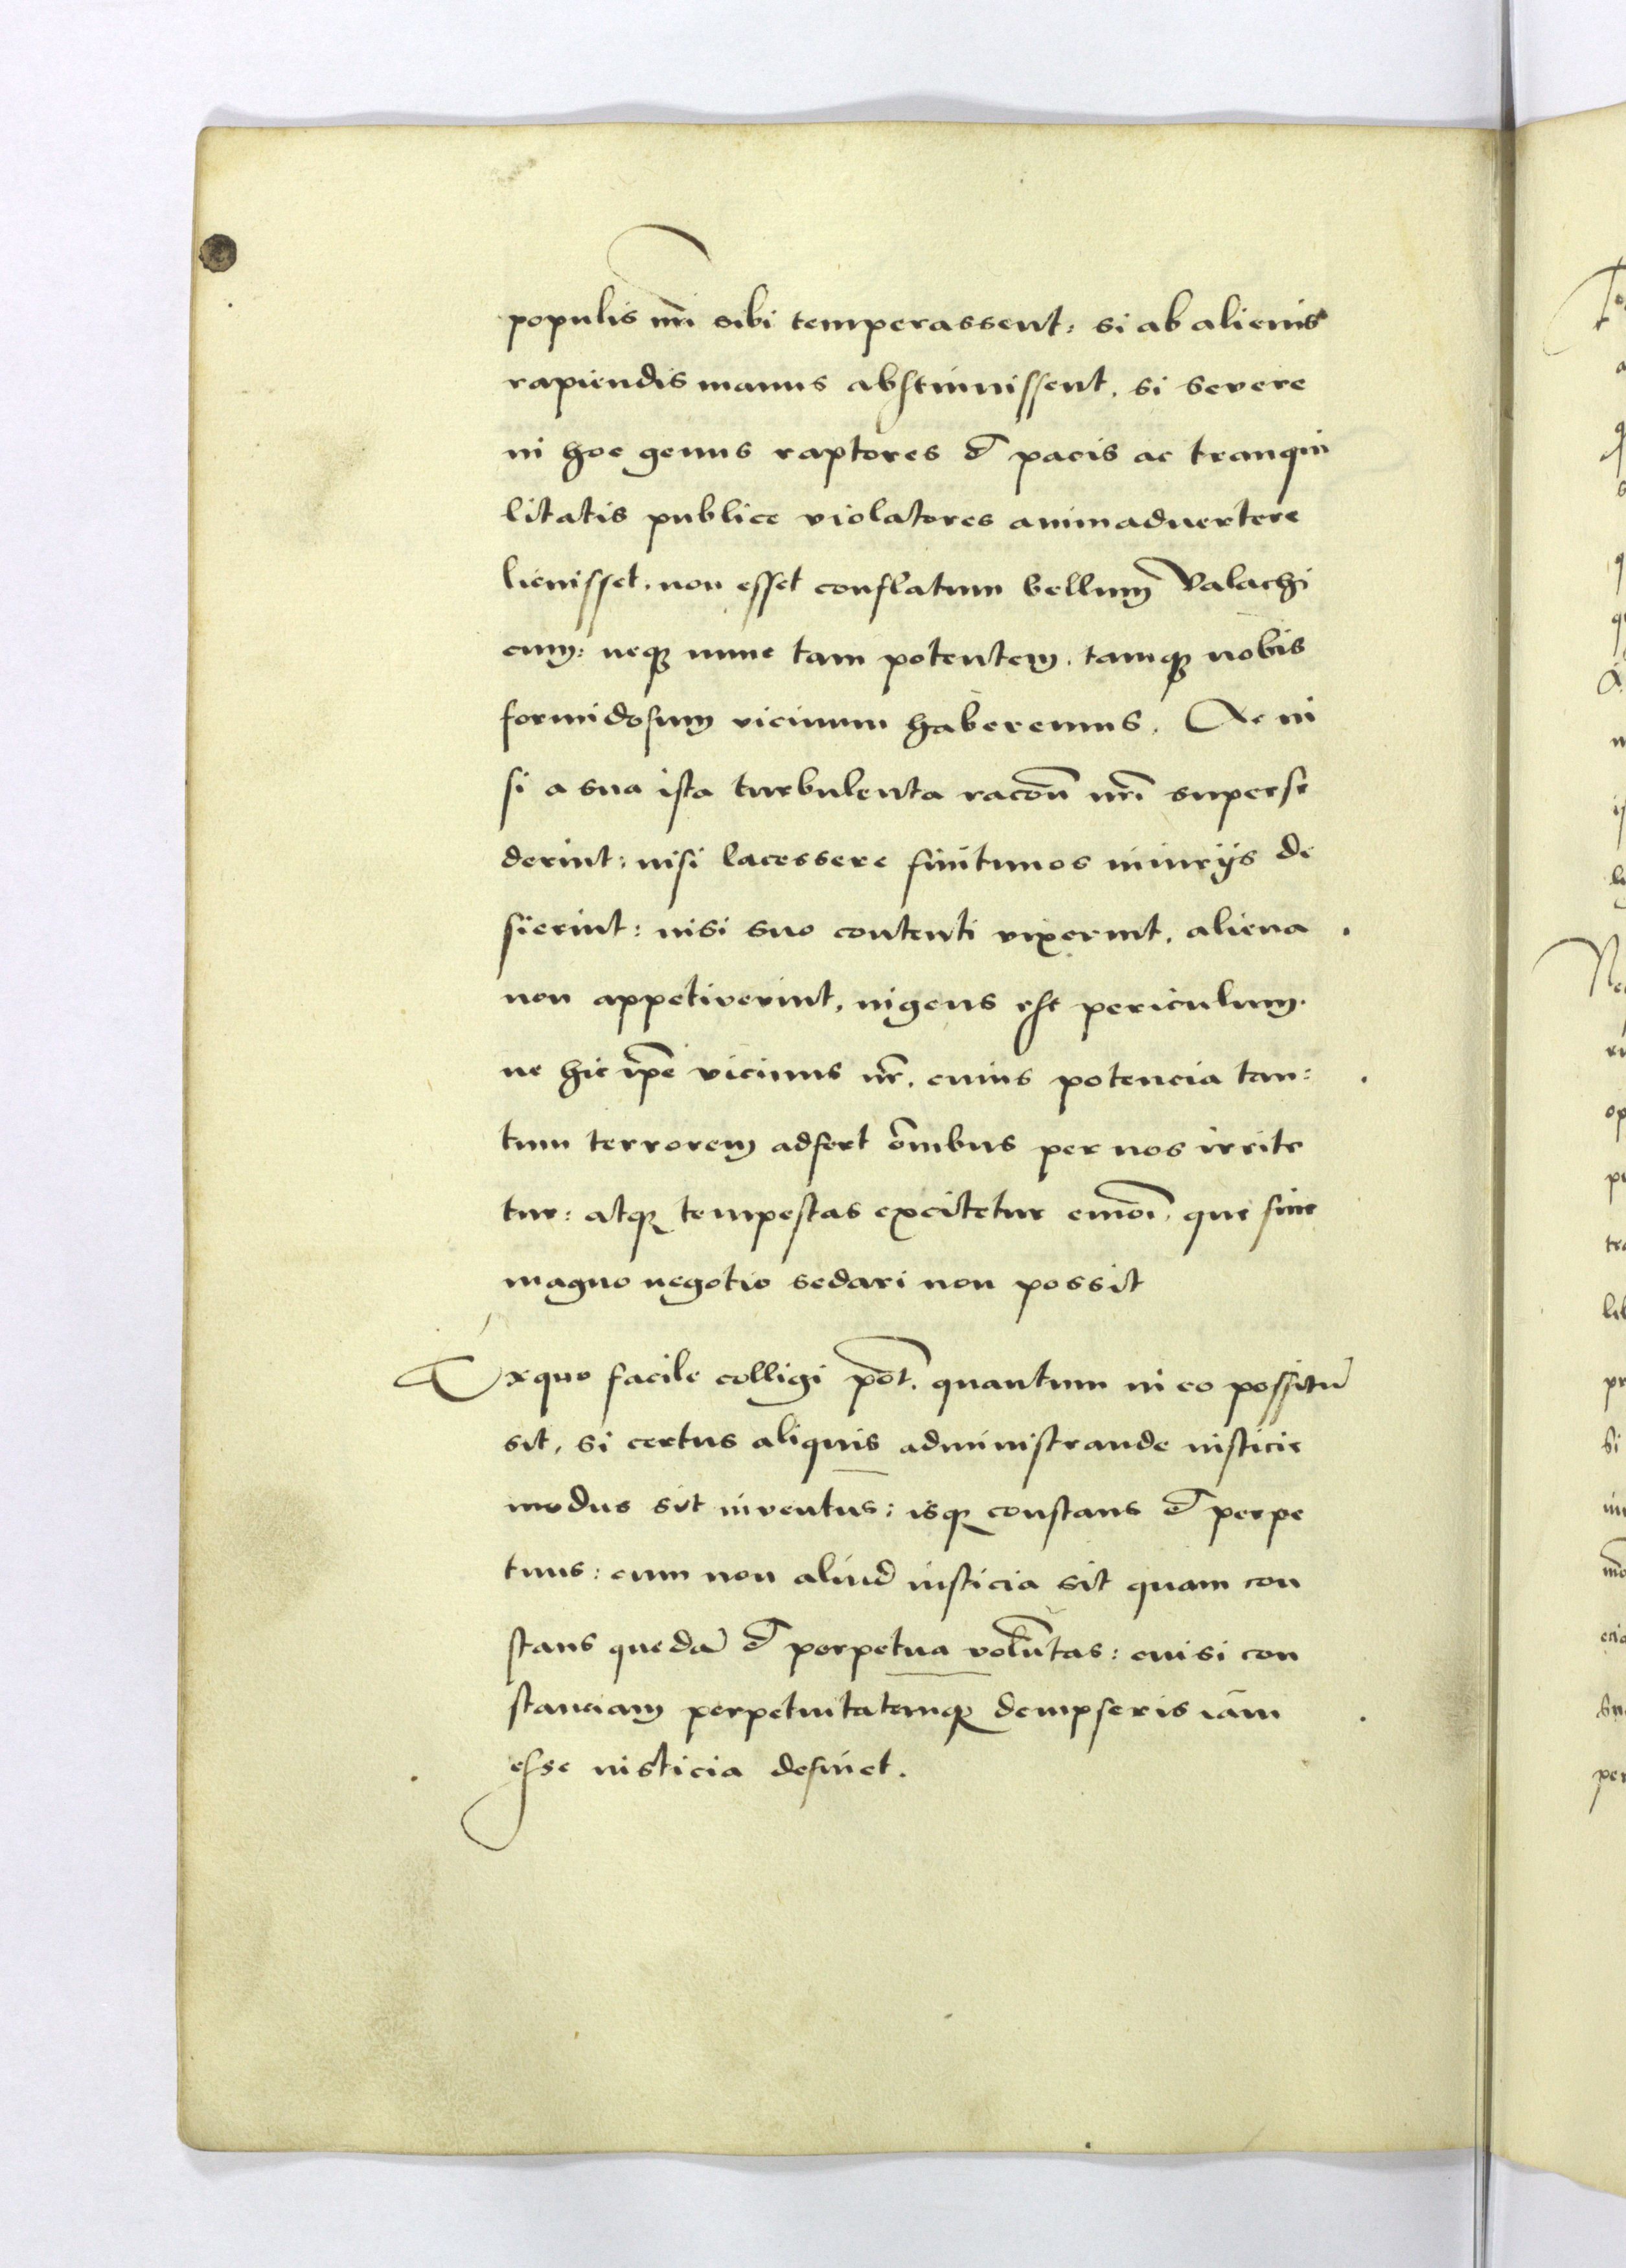 populis nr̄i sibi temperassent: si ab alienis
rapiendis manus abstinuissent, si severe
in hoc genus raptores et pacis ac tranqui
litatis publice violatores animaduertere
licuisset, non esset conflatum bellum Valachi
cum: neqꝫ nunc tam potentem, tamqꝫ nobis
formidosum vicinum haberemus. Ac ni
si a sua ista turbulenta racōn nr̄i superse
derint: nisi lacessere finitimos iniurijs de
sierint: nisi suo contenti vixerint, aliena
non appetiverint, ingens est periculum.
ne hic ip̄e vicinus nr̄, cuius potencia tan:
tum terrorem adfert om̄ibus per nos irrite
tur: atqꝫ tempestas excitetur eiuōi, que sine
magno negotio sedari non possit
Ex quo facile colligi pōt, quantum in eo possitū
sit, si certus aliquis administrande iusticie
modus sit inventus: isqꝫ constans et perpe
tuus: cum non aliud iusticia sit quam con
stans quedā et perpetua volūtas: cui si con
stanciam perpetuitatemqꝫ dempseris iam
esse iusticia desinet.